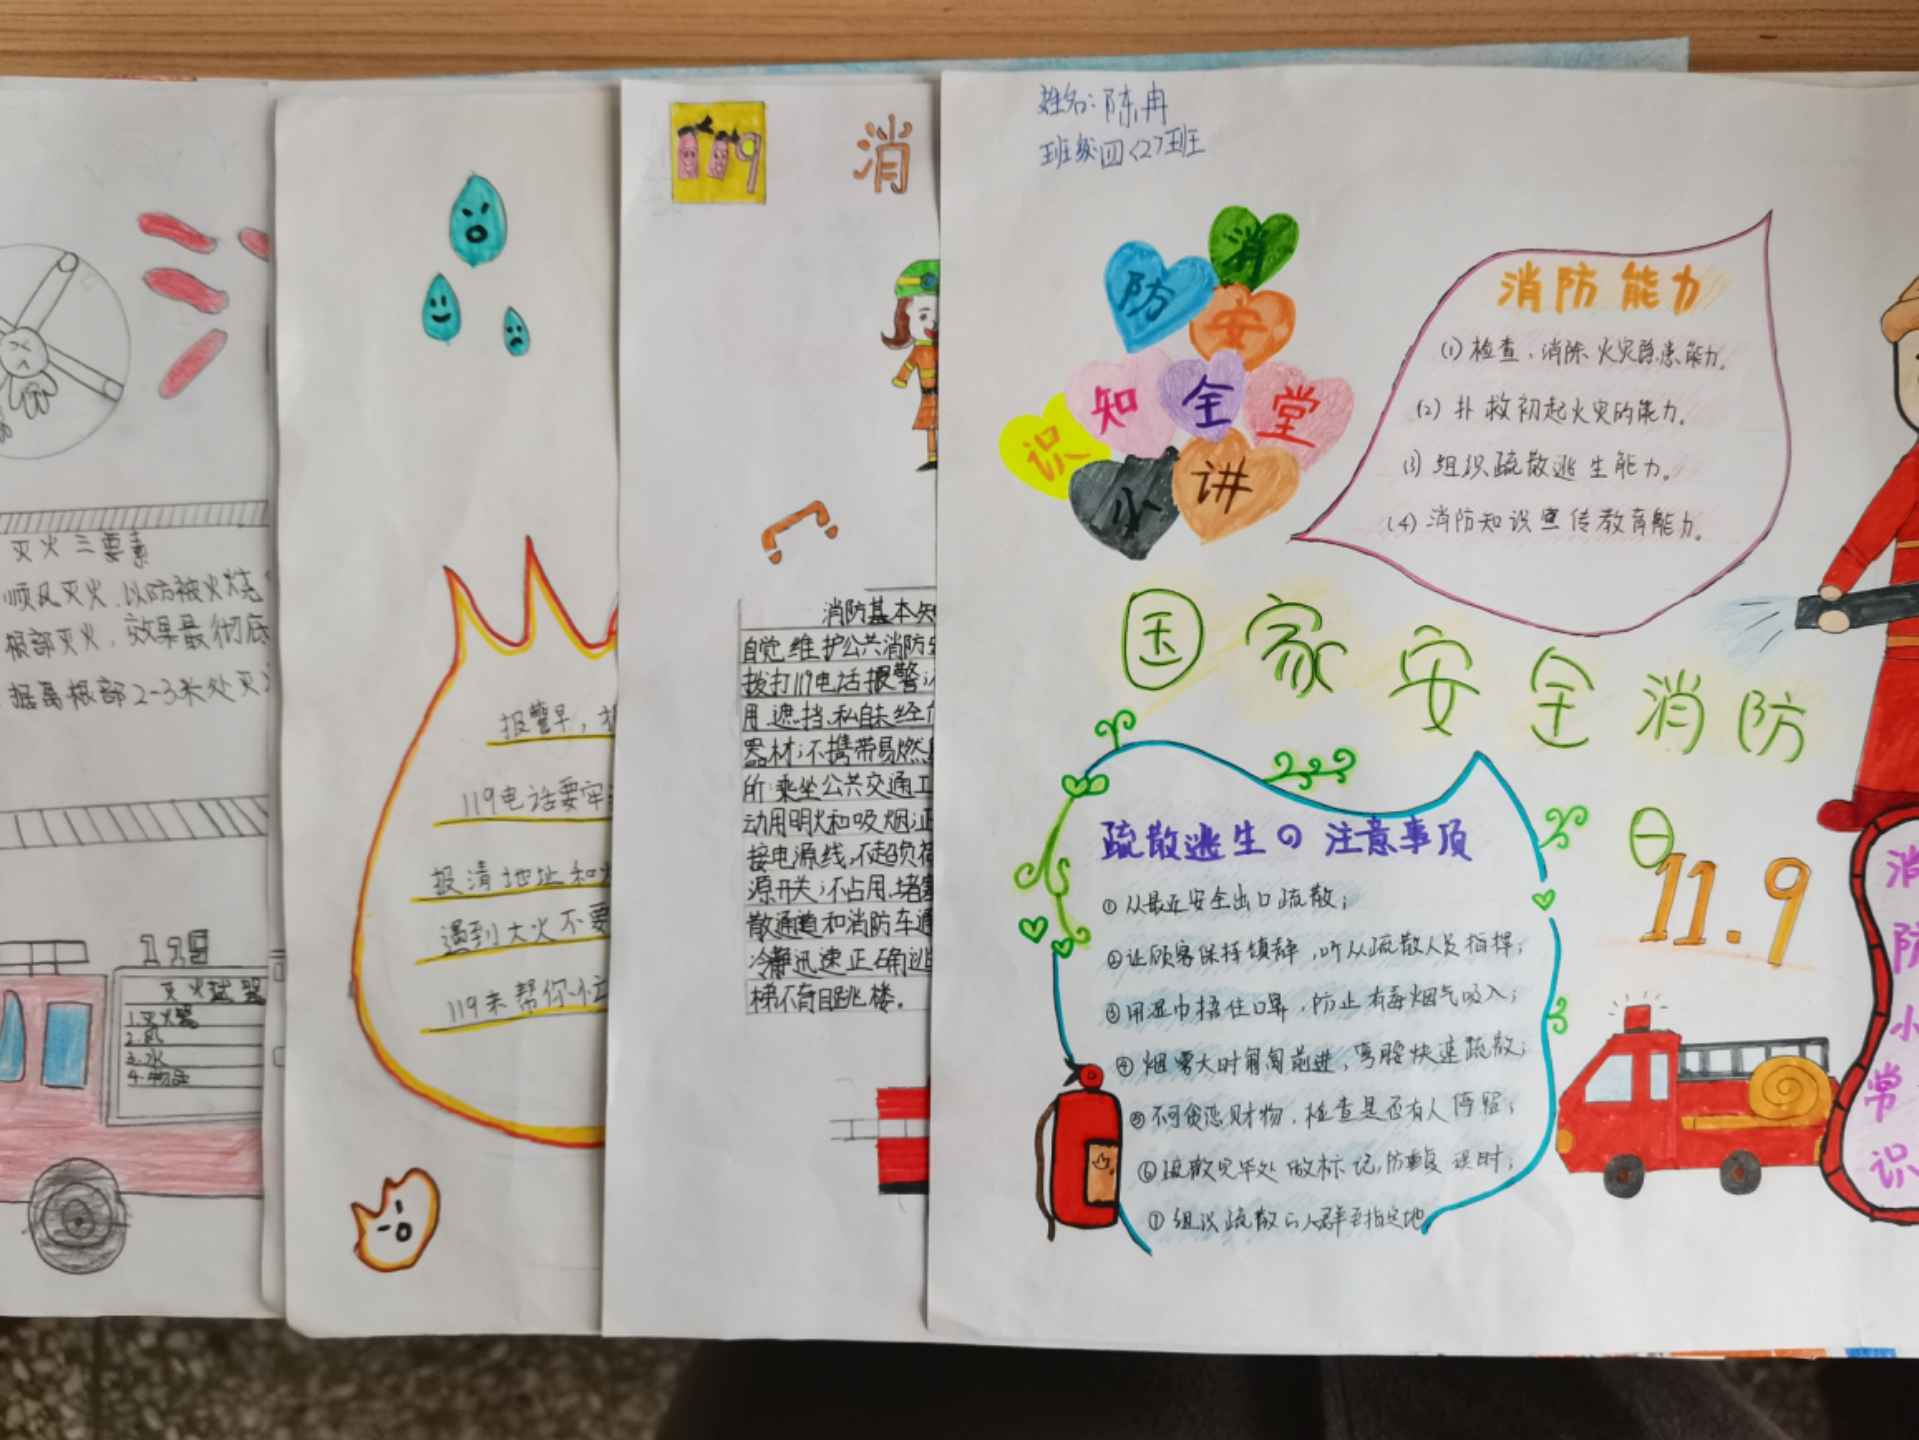 灭火三要素
顺风灭火,以防被火烧
根部灭火,效果最彻底
据离根部2-3米处灭
119
灭火武器
1.灭火器
2.风
3.水
4.物品
报警早,
119电话要牢
报清地址和火
遇到大火不要
119来帮你忙
119
消
消防基本知
自觉维护公共消防安
拨打119电话报警;
用、遮挡、私自未经
器材;不携带易燃
所;乘坐公共交通工
动用明火和吸烟;
接电源线,不超负荷
源开关;不占用、堵塞
散通道和消防车通
冷静迅速正确逃
梯不盲目跳楼。
姓名:陈冉
班级四<2>班
消
防 安
知 全 堂
识 小 讲
消防能力
(1)检查、消除火灾隐患能力。
(2)扑救初起火灾的能力。
(3)组织疏散逃生能力。
(4)消防知识宣传教育能力。
国家安全消防
日
11.9
疏散逃生の注意事项
①从最近安全出口疏散;
②让顾客保持镇静,听从疏散人员指挥;
③用湿巾捂住口鼻,防止有毒烟气吸入;
④烟雾大时匍匐前进,弯腰快速疏散;
⑤不可贪恋财物,检查是否有人停留;
⑥疏散完毕处做标记,防重复误时;
⑦组织疏散的人群至指定地。
消
防
小
常
识